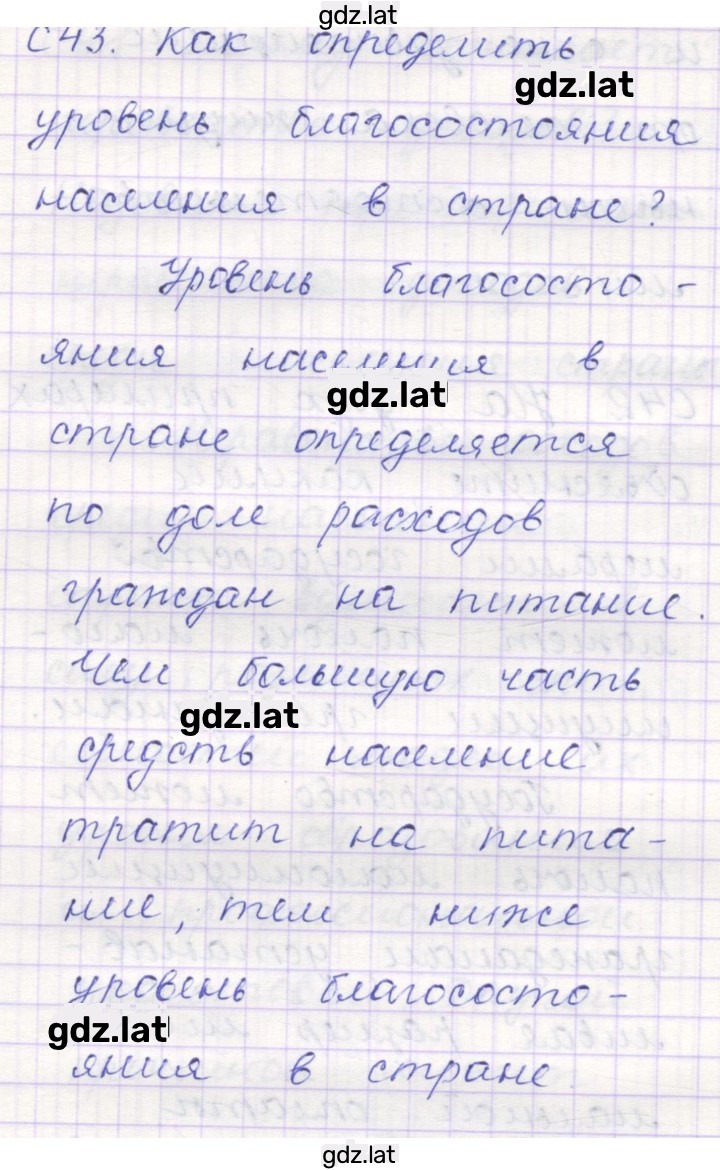 gdz.lat
С43. Как определить
gdz.lat
уровень благосостояния
населения в стране?
Уровень благососто-
яния населения в
gdz.lat
стране определяется
по доле расходов
граждан на питание.
Чем большую часть
gdz.lat
средств население
тратит на пита-
ние, тем ниже
уровень благососто-
gdz.lat
яния в стране.
gdz.lat